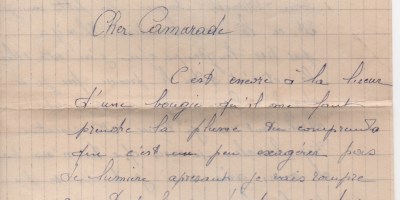 Cher Camarade
C'est encore à la lueur
d'une bougie qu'il me faut
prendre la plume tu comprendra
que c'est un peu exagérer pas
de lumière apresant je vais rompre